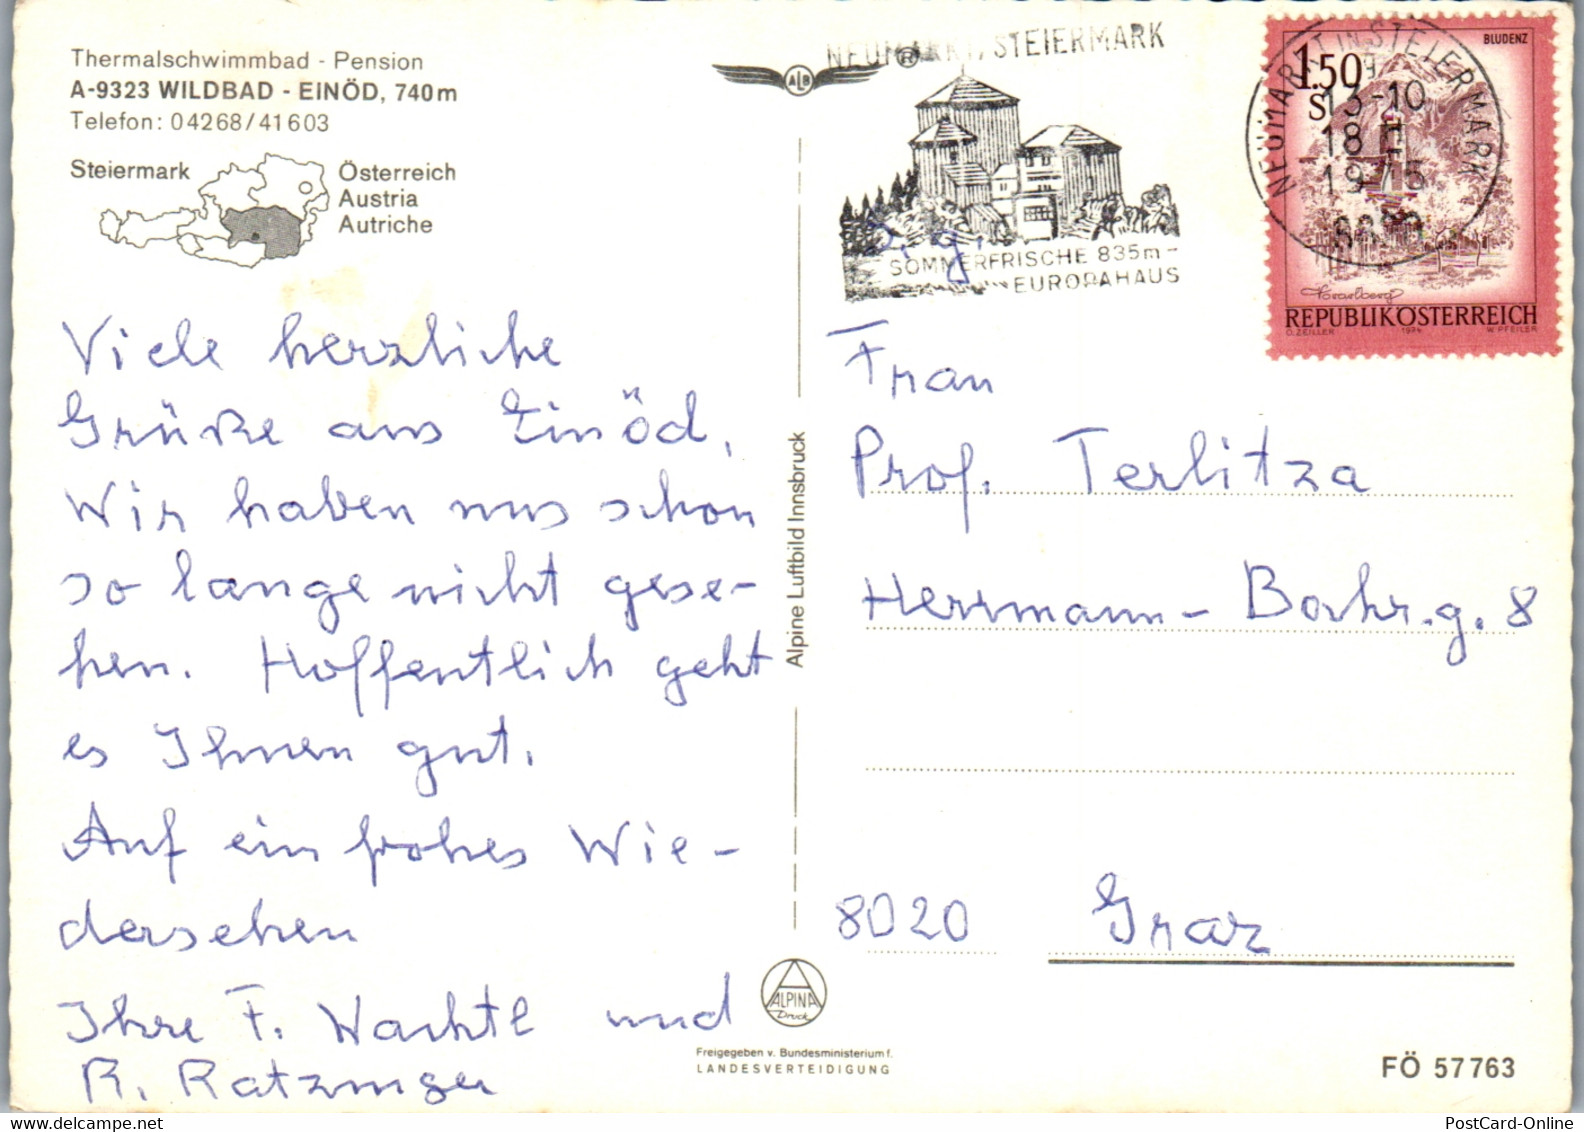 Thermalschwimmbad - Pension
A-9323 WILDBAD - EINÖD, 740m
Telefon: 04268/41603
Steiermark
Österreich
Austria
Autriche
Viele herzliche
Grüße aus Einöd.
Wir haben uns schon
so lange nicht gese-
hen. Hoffentlich geht
es Ihnen gut.
Auf ein frohes Wie-
dersehen
Ihre F. Wachtl und
R. Ratzinger
ALB
®
Alpine Luftbild Innsbruck
ALPINA
Druck
Freigegeben v. Bundesministerium f.
LANDESVERTEIDIGUNG
NEUMARKT, STEIERMARK
SOMMERFRISCHE 835m-
EUROPAHAUS
NEUMARKT IN STEIERMARK
13-10
18
1975
BLUDENZ
1.50
S
Vorarlberg
REPUBLIK ÖSTERREICH
O. ZEILLER 1974 W. PFEILER
Frau
Prof. Terlitza
Herrmann-Bahr.g. 8
8020 Graz
FÖ 57763
PostCard-Online.com